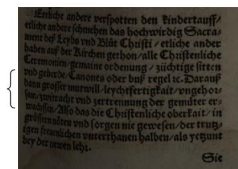 Etliche andere verspotten den kindertauff/
etliche andere schmehen das hochwirdig Sacra-
ment des Leybs vnd Blůts Christi/ etliche ander
haben auff der Kirchen gethon/ alle Christenliche
Ceremonien/ gemaine ordenung/ züchtige sitten
vnd geberde/ Canones oder buß regel ꝛc. Darauß
dann grosser murwill/ leychfertigkait/ vngehor-
sam/ zwitracht vnd zertrennung der gemüter er-
wachssen/ Also das die Christenliche oberkait/ in
grössen nöten vnd sorgen sie gewesen/ der trutz-
igen freuenlichen vnterthanen halben/ als yetzunt
bey der newen lehr.
Sie